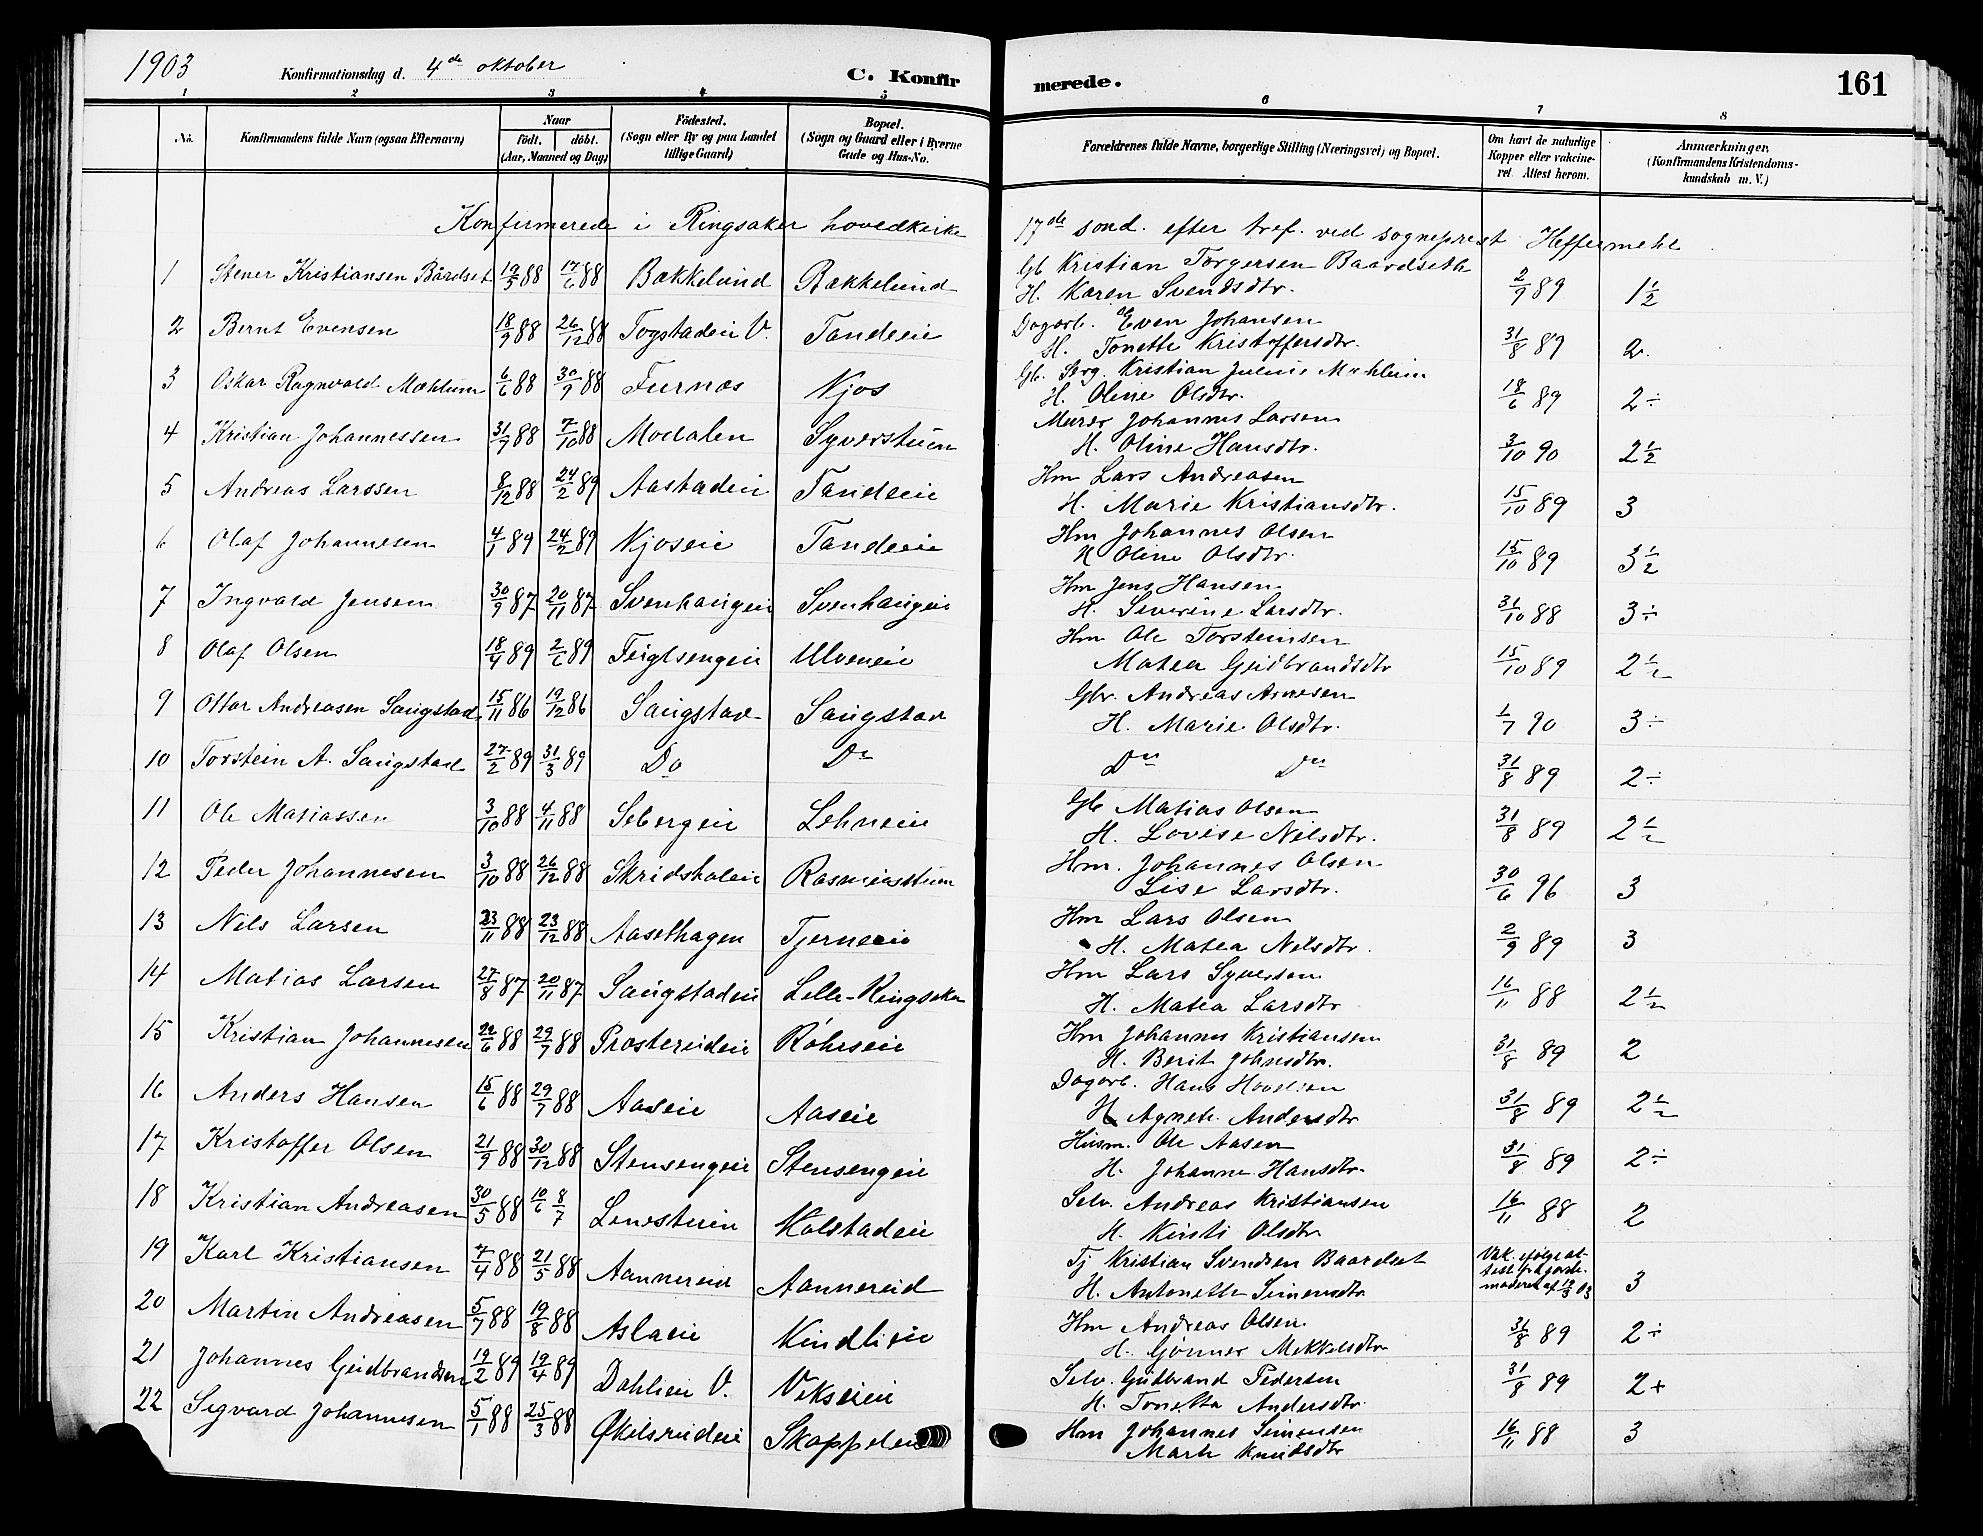 1903 Konfirmationsdag d. 4de oktober C. Konfirmerede. 161
1 2 3 4 5 6 7 8
No. Konfirmandens fulde Navn (ogsaa Efternavn) Naar født. døbt. (Aar, Maaned og Dag) Fødested. (Sogn eller By og paa Landet tillige Gaard) Bopæl. (Sogn og Gaard eller i Byerne Gade og Hus-No. Forældrenes fulde Navne, borgerlige Stilling (Næringsvei) og Bopæl. Om havt de naturlige Kopper eller vakcineret. Attest herom. Anmærkninger, (Konfirmandens Kristendomskundskab m. V.)
Konfirmerede i Ringsaker hovedkirke 17de sønd. efter tref. ved sogneprest Heffermehl
1 Stener Kristiansen Bårdset 19/5 88 17/6 88 Bakkelund Bakkelund Gb Kristian Torgersen Baardseth H. Karen Svendsdtr. 2/9 89 1 1/2
2 Bernt Evensen 18/9 88 26/12 88 Togstadeie V. Tandeeie Dagarb. Even Johansen H. Tonette Kristoffersdtr. 31/8 89 2.
3 Oskar Ragnvald Mæhlum 6/6 88 30/9 88 Furnæs Njøs Gb. Serg. Kristian Julius Mæhlum H. Oline Olsdtr. 18/6 89 2÷
4 Kristian Johannessen 31/7 88 7/10 88 Modalen Syverstuen Murer Johannes Larsen H. Oline Hansdtr. 3/10 90 2 1/2
5 Andreas Larssen 8/12 88 24/2 89 Aastadeie Tandeeie Hm Lars Andreasen H. Marie Kristiansdtr. 15/10 89 3
6 Olaf Johannesen 4/1 89 24/2 89 Njøseie Tandeeie Hm Johannes Olsen H Oline Olsdtr. 15/10 89 3 1/2
7 Ingvald Jensen 30/9 87 20/11 87 Svenhaugeie Svenhaugeie Hm Jens Hansen H. Severine Larsdtr. 31/10 88 3÷
8 Olaf Olsen 18/4 89 2/6 89 Feiglsengeie Ulveneie Hm Ole Torsteinsen Matea Gudbrandsdtr 15/10 89 2 1/2
9 Ottar Andreasen Saugstad 15/11 86 19/12 86 Saugstad Saugstad Gbr. Andreas Arnesen H. Marie Olsdtr. 1/7 90 3÷
10 Torstein A. Saugstad 27/2 89 31/3 89 Do Do Do Do 31/8 89 2÷
11 Ole Matiassen 3/10 88 4/11 88 Sebergeie Lehneeie Gb Matias Olsen H. Lovise Nilsdtr. 31/8 89 2 1/2
12 Peder Johannesen 3/10 88 26/12 88 Skridsholeie Rasmusstuen Hm. Johannes Olsen Lise Larsdtr. 30/6 96 3
13 Nils Larsen 23/11 88 23/12 88 Aasethagen Tjerneeie Hm Lars Olsen H. Matea Nilsdtr. 2/9 89 3
14 Matias Larsen 27/8 87 20/11 87 Saugstadeie Lille-Ringsaker Hm Lars Syversen H. Matea Larsdtr 16/11 88 2 1/2
15 Kristian Johannesen 22/6 88 29/7 88 Prestereideie Röhrseie Hm Johannes Kristiansen H. Berit Johnsdtr. 31/8 89 2
16 Anders Hansen 15/6 88 29/7 88 Aaseie Aaseie Dagarb. Hans Hovelsen H Agnete Andersdtr 31/8 89 2 1/2
17 Kristoffer Olsen 21/9 88 30/12 88 Stensengeie Stensengeie Husm. Ole Aasen H. Johanne Hansdtr. 31/8 89 2÷
18 Kristian Andreasen 30/5 88 10/6 8/7 Lenestuen Molstadeie Selv. Andreas Kristiansen H. Kinsti Olsdtr 16/11 88 2
19 Karl Kristiansen 7/4 88 21/5 88 Aannerud Aannerud Tj Kristian Svendsen Baardset H. Antonette Simensdtr Vak. ifølge attest fra jordemoderet af 19/3 03 3
20 Martin Andreasen 5/7 88 19/8 88 Aslaeie Kindlieie Hm Andreas Olsen. H. Gønner Mekkelsdtr 31/8 89 2÷
21 Johannes Gudbrandsen 19/2 89 19/4 89 Dahlieie V. Vekseeie Selv. Gudbrand Pedersen H. Tonetta Andersdtr. 31/8 89 2+
22 Sigvard Johannesen 5/1 88 25/3 88 Økelsrudeie Skappeleie Hm Johannes Simensen Marte Knudsdtr 16/11 88 3